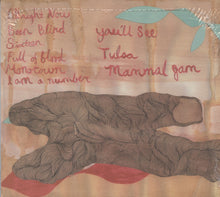 Straight Now
Been Blind
Sixteen
Full of Blood
Monotown
I am a number
You'll See
Tulsa
Mammal Jam